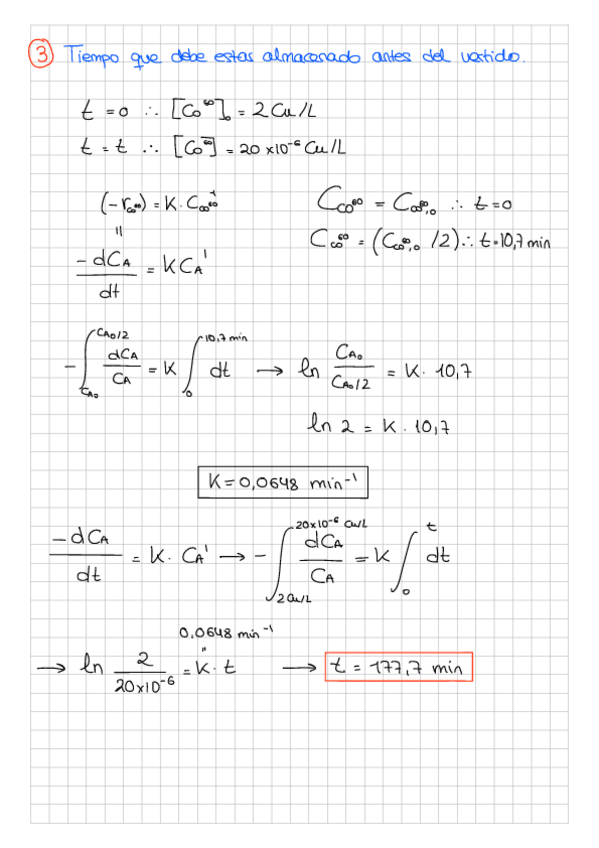 3 Tiempo que debe estar almacenado antes del vertido.
t = 0 ∴ [Co⁶⁰]₀ = 2 Cu/L
t = t ∴ [Co⁶⁰] = 20 x10⁻⁶ Cu/L
(-r_Co⁶⁰) = K · C_Co⁶⁰¹
C_Co⁶⁰ = C_Co⁶⁰,₀ ∴ t = 0
||
C_Co⁶⁰ = (C_Co⁶⁰,₀ /2) ∴ t = 10,7 min
-dCA/dt = K CA¹
-∫_{CA₀}^{CA₀/2} dCA/CA = K ∫_0^{10,7 min} dt → ln CA₀/(CA₀/2) = K · 10,7
ln 2 = K · 10,7
K = 0,0648 min⁻¹
-dCA/dt = K · CA¹ → -∫_{2 Cu/L}^{20x10⁻⁶ Cu/L} dCA/CA = K ∫_0^t dt
0,0648 min⁻¹
"
→ ln 2/(20x10⁻⁶) = K · t → t = 177,7 min